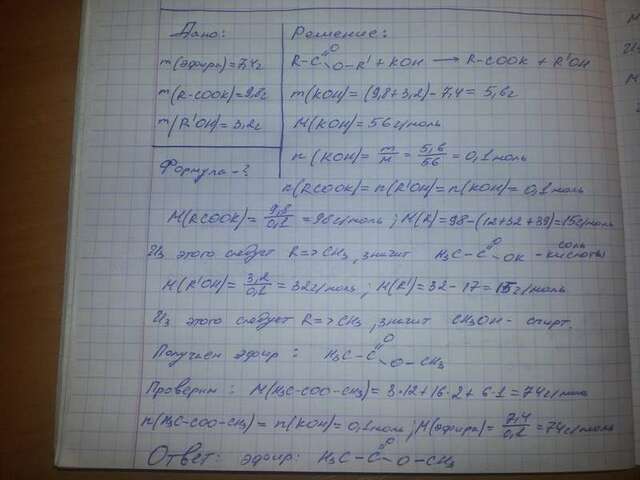 Дано:
m(эфира)=7,4г
m(R-COOK)=9,8г
m(R'OH)=3,2г
Формула-?
Решение:
R-C(=O)-O-R' + KOH → R-COOK + R'OH
m(KOH)=(9,8+3,2)-7,4=5,6г
M(KOH)=56г/моль
n(KOH)=m/M=5,6/56=0,1моль
n(RCOOK)=n(R'OH)=n(KOH)=0,1моль
M(RCOOK)=9,8/0,1=98г/моль; M(R)=98-(12+32+39)=15г/моль
Из этого следует R=>CH3, значит H3C-C(=O)-OK - соль кислоты
M(R'OH)=3,2/0,1=32г/моль; M(R')=32-17=15г/моль
Из этого следует R=>CH3, значит CH3OH- спирт.
Получаем эфир: H3C-C(=O)-O-CH3
Проверим: M(H3C-COO-CH3)=3·12+16·2+6·1=74г/моль
n(H3C-COO-CH3)=n(KOH)=0,1моль; M(эфира)=7,4/0,1=74г/моль
Ответ: эфир: H3C-C(=O)-O-CH3